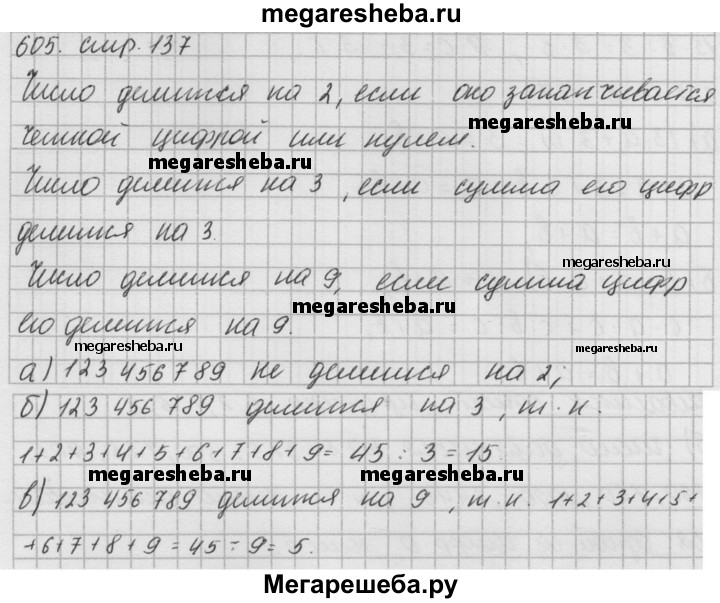 megaresheba.ru
605. стр. 137
Число делится на 2, если оно заканчивается
megaresheba.ru
четной цифрой или нулем.
megaresheba.ru
Число делится на 3, если сумма его цифр
делится на 3.
megaresheba.ru
Число делится на 9, если сумма цифр
megaresheba.ru
его делится на 9.
megaresheba.ru
megaresheba.ru
а) 123 456 789 не делится на 2;
б) 123 456 789 делится на 3, т.к.
1+2+3+4+5+6+7+8+9= 45 : 3 = 15.
megaresheba.ru
megaresheba.ru
в) 123 456 789 делится на 9, т.к. 1+2+3+4+5+
+6+7+8+9=45÷9=5.
Мегарешеба.ру